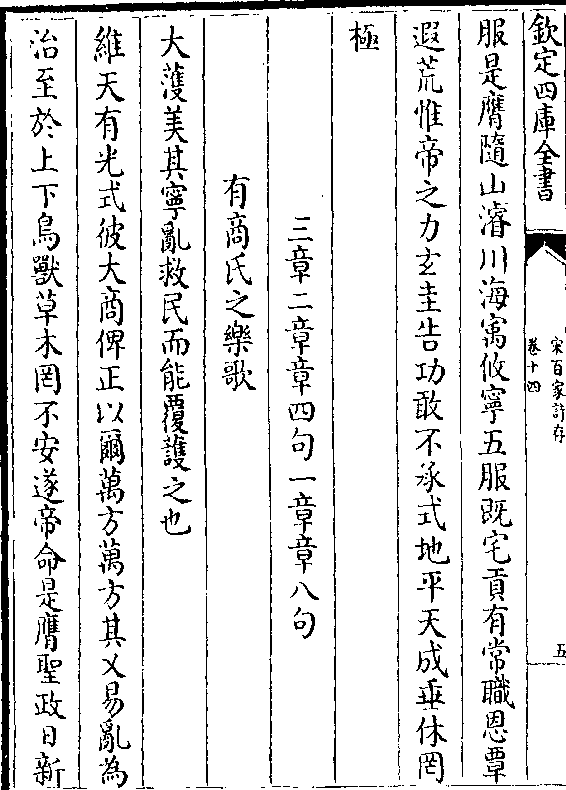 欽定四庫全書
宋百家詩存
卷十四
五
服是膺隨山濬川海寓攸寧五服既宅貢有常職恩覃
遐荒惟帝之力玄圭告功敢不承式地平天成垂休罔
極
三章二章章四句一章章八句
有商氏之樂歌
大濩美其寧亂救民而能覆護之也
維天有光式彼大商俾正以爾萬方萬方其乂易亂為
治至於上下鳥獸草木罔不安遂帝命是膺聖政日新